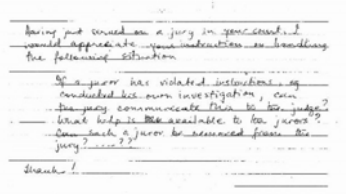 Having just served on a jury in your court, I
would appreciate your instruction on handling
the following situation
If a juror has violated instructions, eg
conducted his own investigation, can
the jury communicate this to the judge?
What help is available to the jurors?
Can such a juror be removed from the
jury? ....??
Thanks!